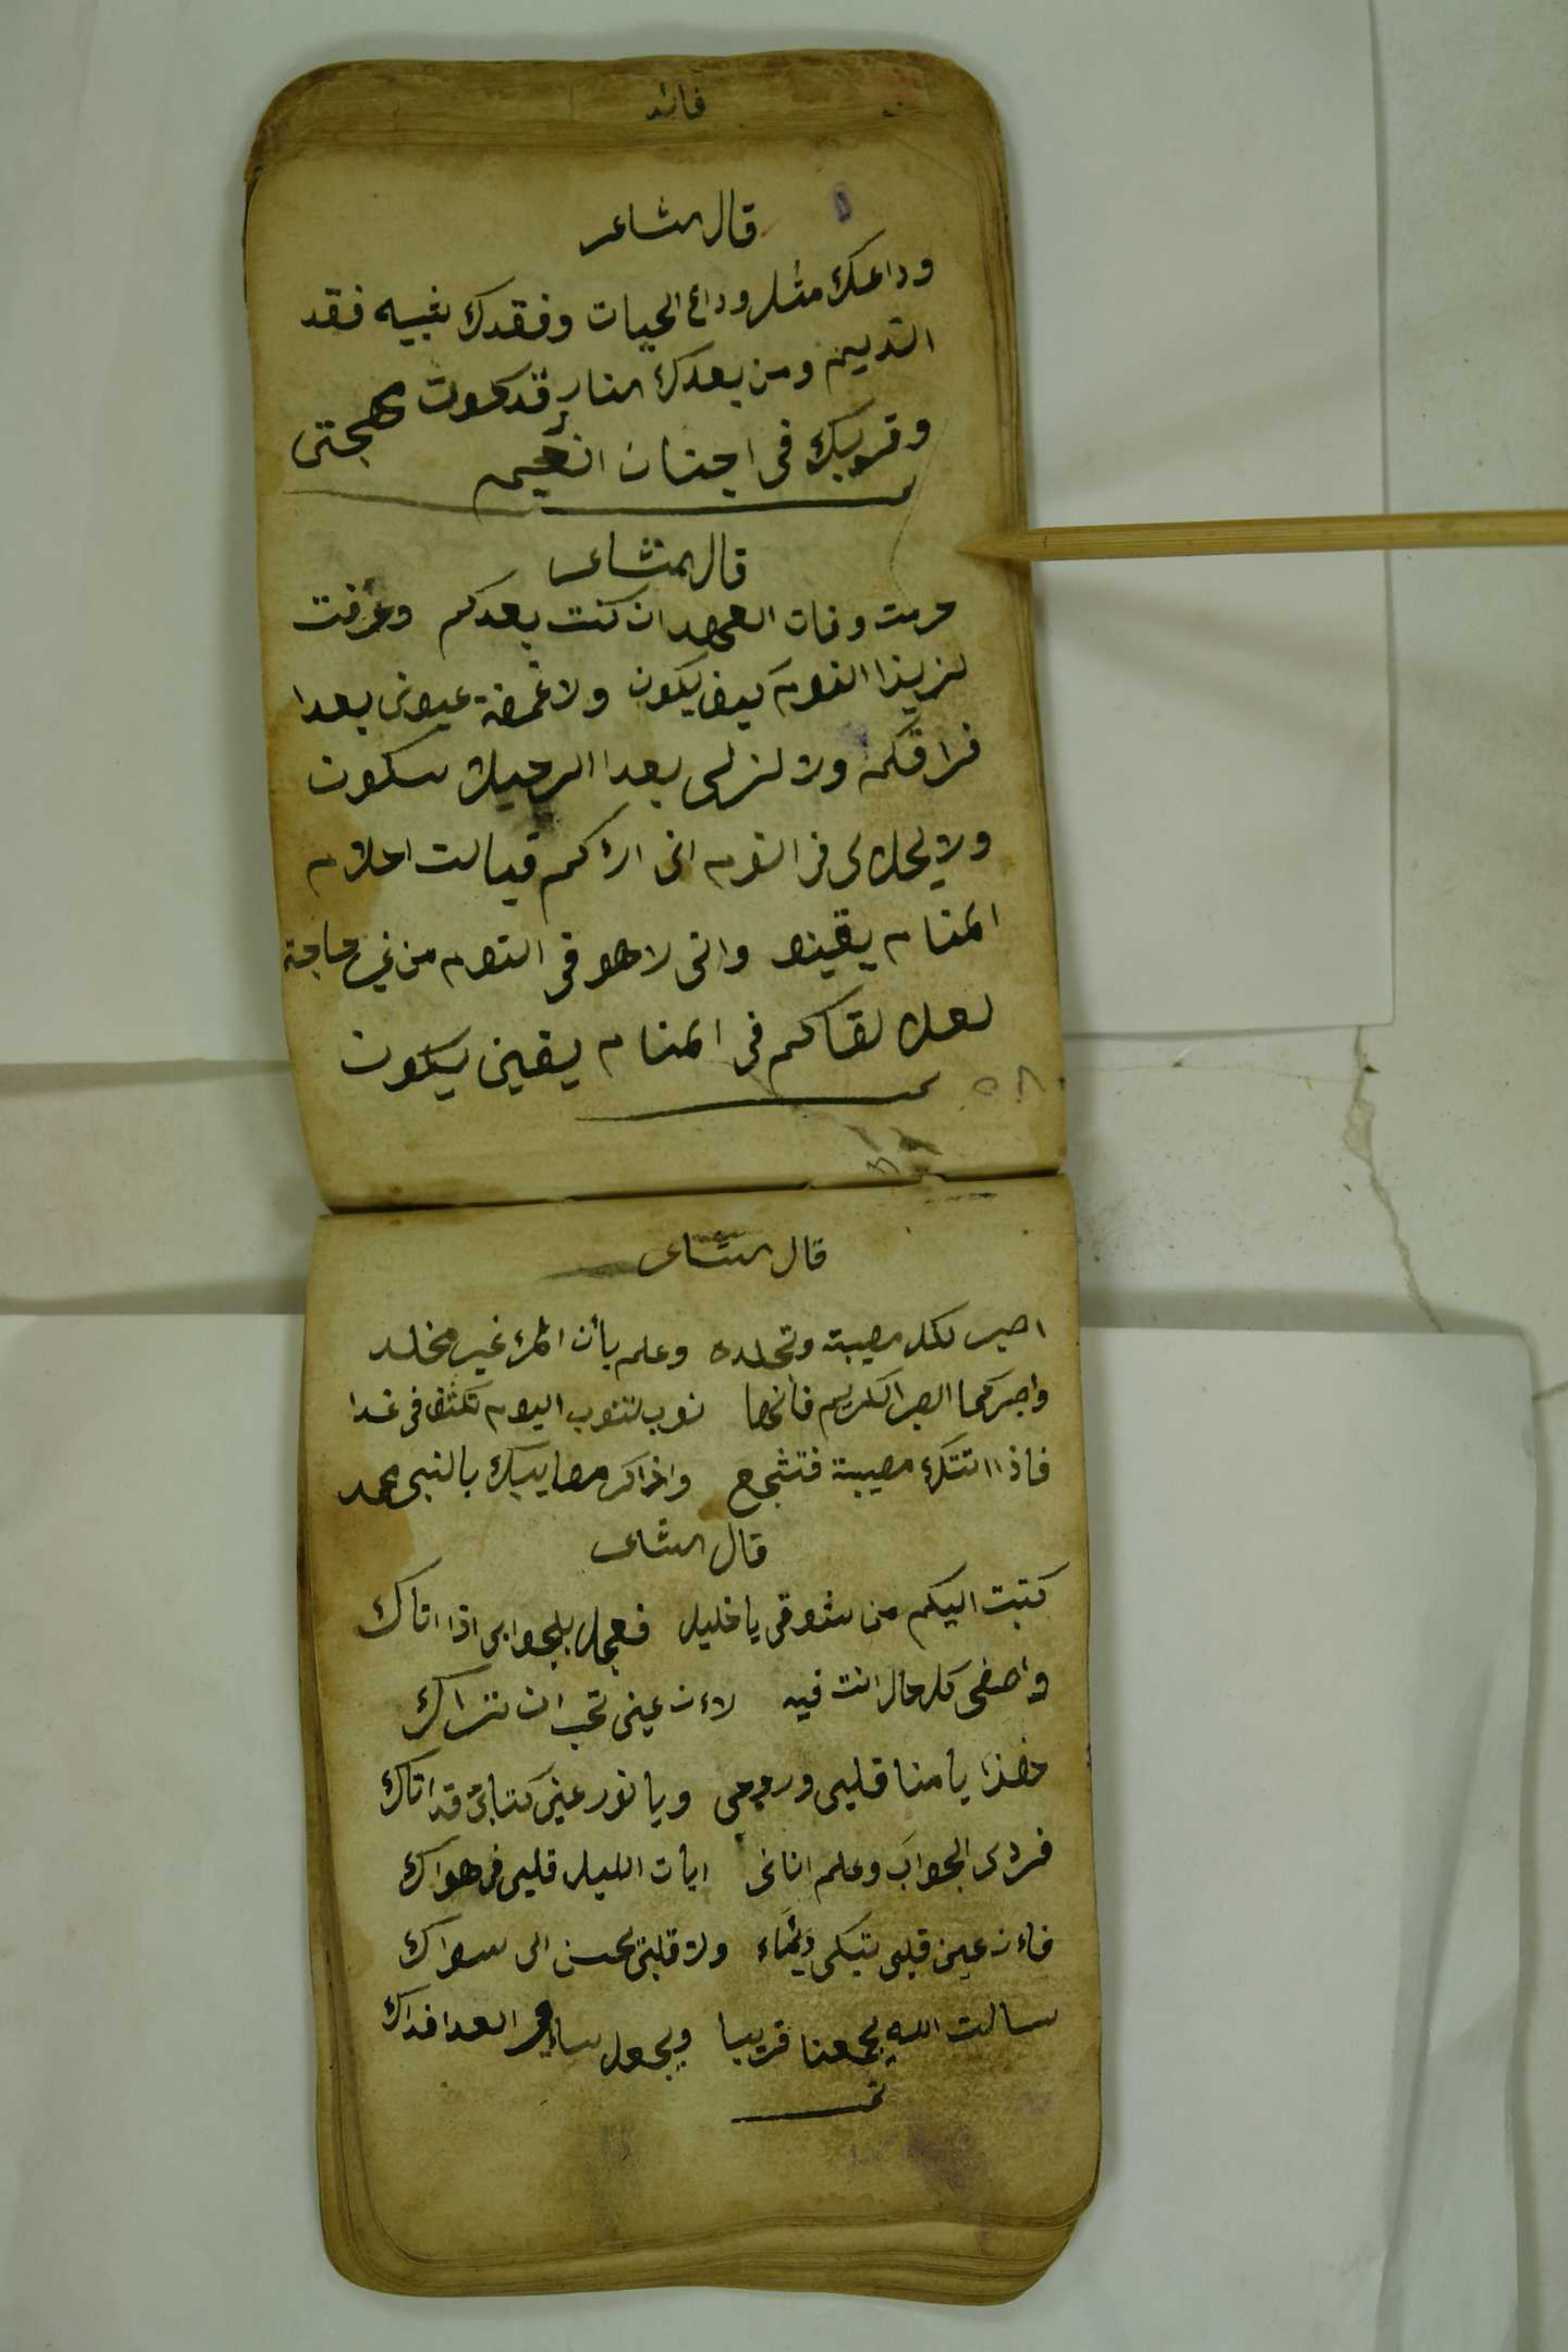 فائد
قال الشاعر
وداعك مثلر وداع الحيات وفقدك يشبيه فقد
النديم ومن بعدك النار قد كوت مهجتى
وقربك فى اجنان انعيم
قال الشاعر
حرمت وفات العهد ان كنت بعدكم وعرفت
لزيذا النوم كيف يكون ولا غمضة عيونى بعدا
فراقكم ولا لزلى بعدا الرحيل سكون
ولا يحل لى فى النوم انى اراكم فيالت احلام
المنام يقينو وانى لاهو فى النوم من غير حاجة
لعل لقاكم فى المنام يقين يكون
تمت
٥٨
قال الشاعر
اصبر لكل مصيبة وتجلده وعلم بأن المرئ غير مخلد
واصبر كما الصبر الكريم فانها نوب تنوب اليوم تكشف فى غدا
فاذا اتتك مصيبة فتشجع واذاكر مصايبك بالنبى محمد
قال الشاعر
كتبت اليكم من شوقى يا خليل فعجل بلجوابى اذا اتاك
واصفى كل حال انت فيه لاءن عينى تحب ان تراك
فهذا يا منا قلبى وروحى ويا نور عينى كتابى قد اتاك
فردى الجواب وعلم اننى ابات الليل قلبى فى هواك
فاءن عين قلبى تبكى دئماء ولا قلبى يحسن الى سواك
سالت الله يجمعنا قريبا ويجعل ساير العدا فداك
تمت